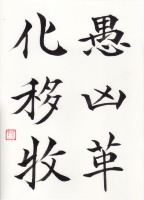 愚凶革
化移牧